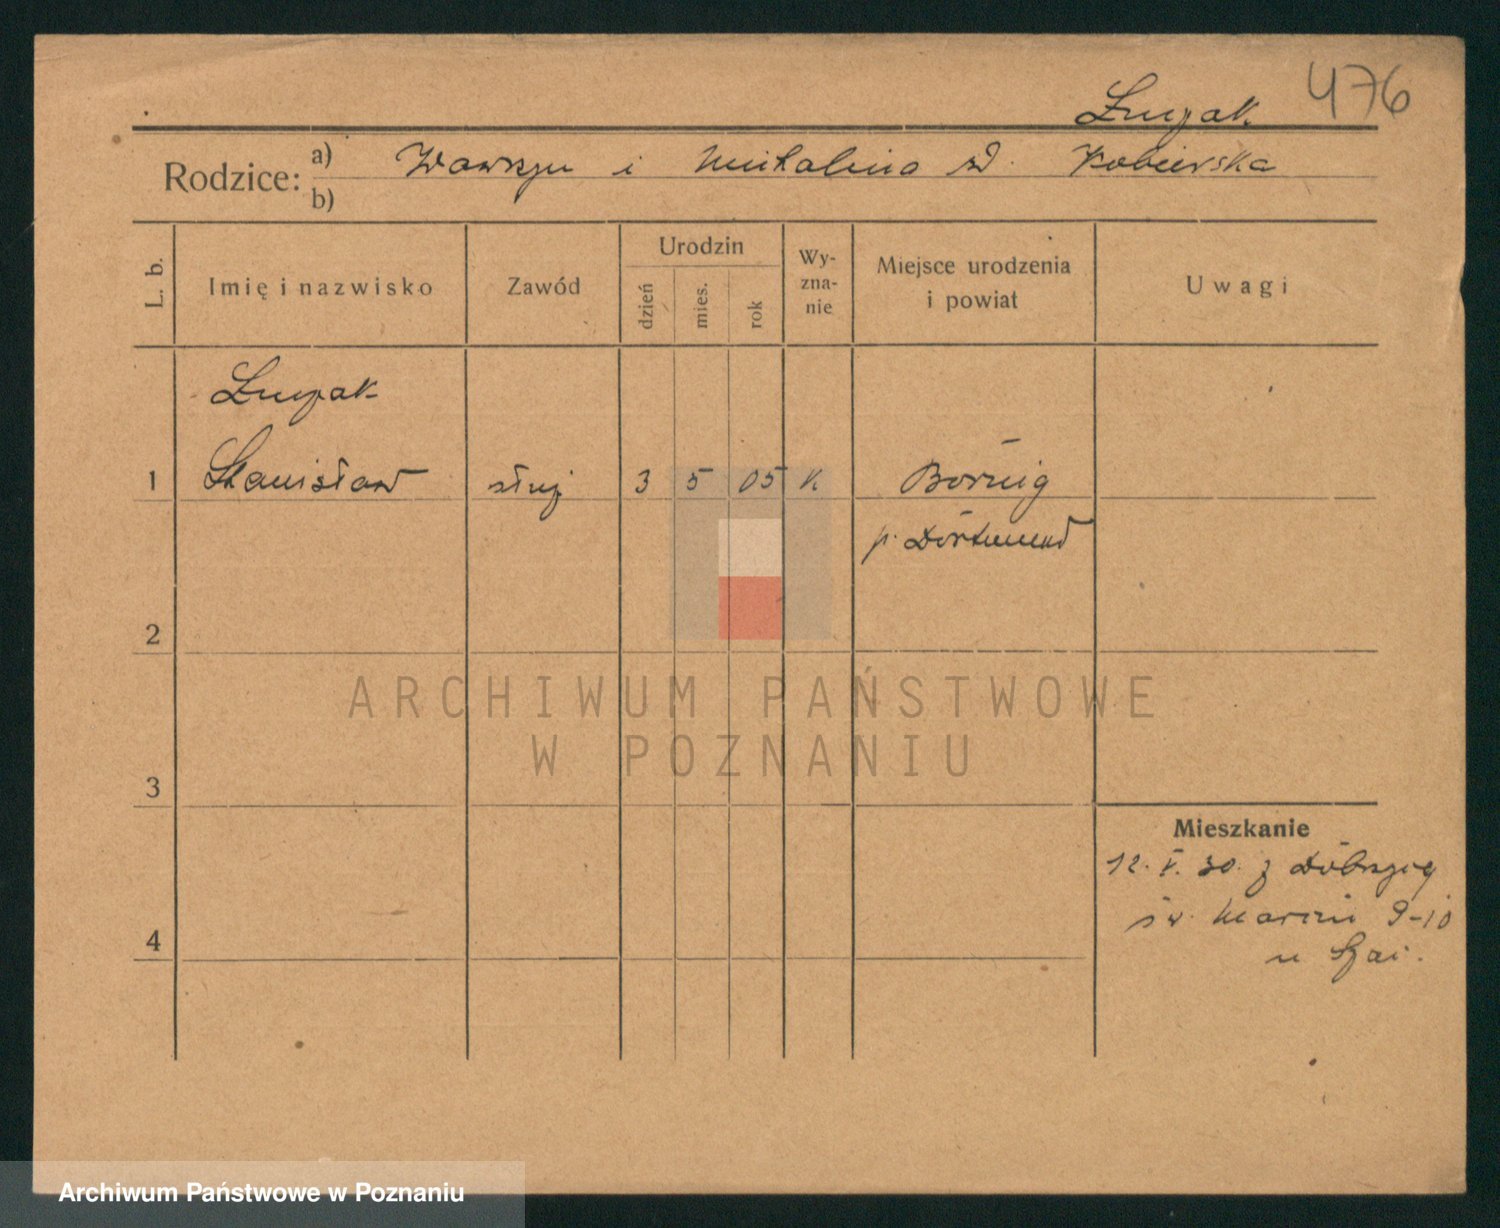 476
Rodzice: a) Wawrzyn i Michalina
b)
L. b.
Imię i nazwisko
Zawód
Urodzin
dzień
mies.
rok
Wy-
zna-
nie
Miejsce urodzenia
i powiat
Uwagi
1
Stanisław
3 5 05 K
Börnig
p. Dortmund
2
3
4
Mieszkanie
12. V. 30. z
św. Marcin 9-10
u
ARCHIWUM PAŃSTWOWE
W POZNANIU
Archiwum Państwowe w Poznaniu